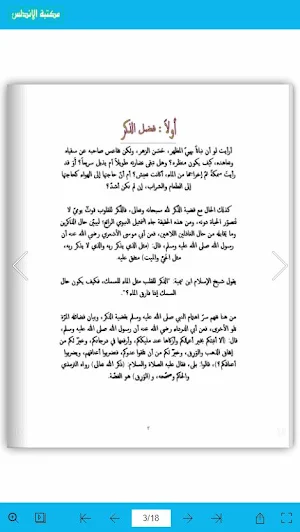 مكتبة الاندلس
أولاً : فضل الذكر
أرأيت لو أن نباتاً بهيّ المظهر، حسَن الزهر، ولكن تقاعس صاحبه عن سقياه
وتعاهده، كيف يكون منظره؟ وهل تبقى نضارته طويلاً أم يذبل سريعاً؟ أوْ قد
رأيتَ سمكةً تمّ إخراجها من الماء، أكانت تعيش؟ أم أنّ حاجتها إلى الهواء كحاجتها
إلى الطعام والشراب، إن لم تكن أشدّ؟
كذلك الحال مع قضية الذكر لله سبحانه وتعالى، فالذّكر للقلوب قوتٌ يوميّ لا
تُتصوّر الحياة دونه، ومن هذه الحقيقة جاء التمثيل النبوي الرائع ليبيّن حال الذاكرين
وما يقابله من حال الغافلين اللاهين، فعن أبي موسى الأشعري رضي الله عنه أن
رسول الله صلى الله عليه وسلم، قال: (مثل الذي يذكر ربه والذي لا يذكر ربه،
مثل الحيّ والميت) متفق عليه.
يقول شيخ الإسلام ابن تيمية: "الذكر للقلب مثل الماء للسمك، فكيف يكون حال
السمك إذا فارق الماء؟".
من هنا نفهم سرّ اهتمام النبي صلى الله عليه وسلم بقضية الذكر، وبيان فضائله المرّة
تلو الأخرى، فعن أبي الدرداء رضي الله عنه أن رسول الله صلى الله عليه وسلم،
قال: (ألا أنبئكم بخير أعمالكم وأزكاها عند مليككم، وأرفعها في درجاتكم، وخيرٌ لكم من
إنفاق الذهب والوَرِق، وخيرٌ لكم من أن تلقوا عدوّكم، فتضربوا أعناقهم، ويضربوا
أعناقكم؟)، قالوا: بلى، فقال عليه الصلاة والسلام: (ذكر الله تعالى) رواه الترمذي
والحاكم وصحّحه، و(الوَرِق) هو الفضّة.
٣
3/18